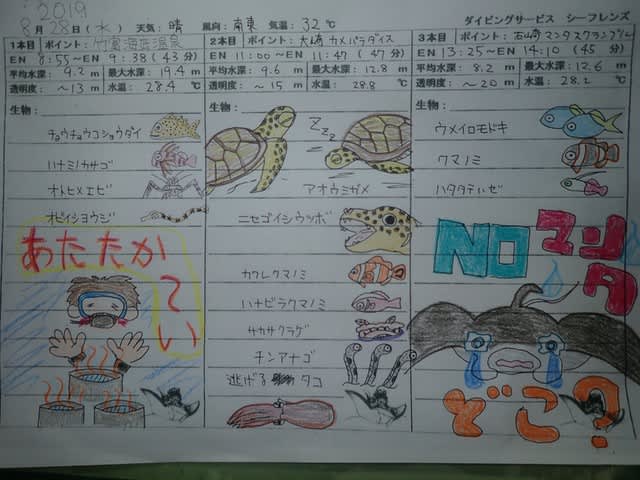 2019
8月28日(水) 天気:晴 風向:南東 気温:32℃ ダイビングサービス シーフレンズ
1本目 ポイント:竹富海底温泉
EN 8:55～EN 9:38(43分)
平均水深: 9.2 m 最大水深: 19.4 m
透明度: ～13 m 水温: 28.4 ℃
生物:
チョウチョウコショウダイ
ハナミノカサゴ
オトヒメエビ
オビイショウジ
あたたか
てい
2本目 ポイント:大崎カメパラダイス
EN 11:00～EN 11:47(47分)
平均水深: 9.6 m 最大水深: 12.8 m
透明度: ～15 m 水温: 28.8 ℃
生物:
zzz
アオウミガメ
ニセゴイシウツボ
カクレクマノミ
ハナビラクマノミ
サカサクラゲ
チンアナゴ
逃げる タコ
3本目 ポイント:石崎マンタスクランブル
EN 13:25～EN 14:10(45分)
平均水深: 8.2 m 最大水深: 12.6 m
透明度: ～20 m 水温: 28.2 ℃
生物:
ウメイロモドキ
クマノミ
ハタタテハゼ
NOマンタ
どこ?